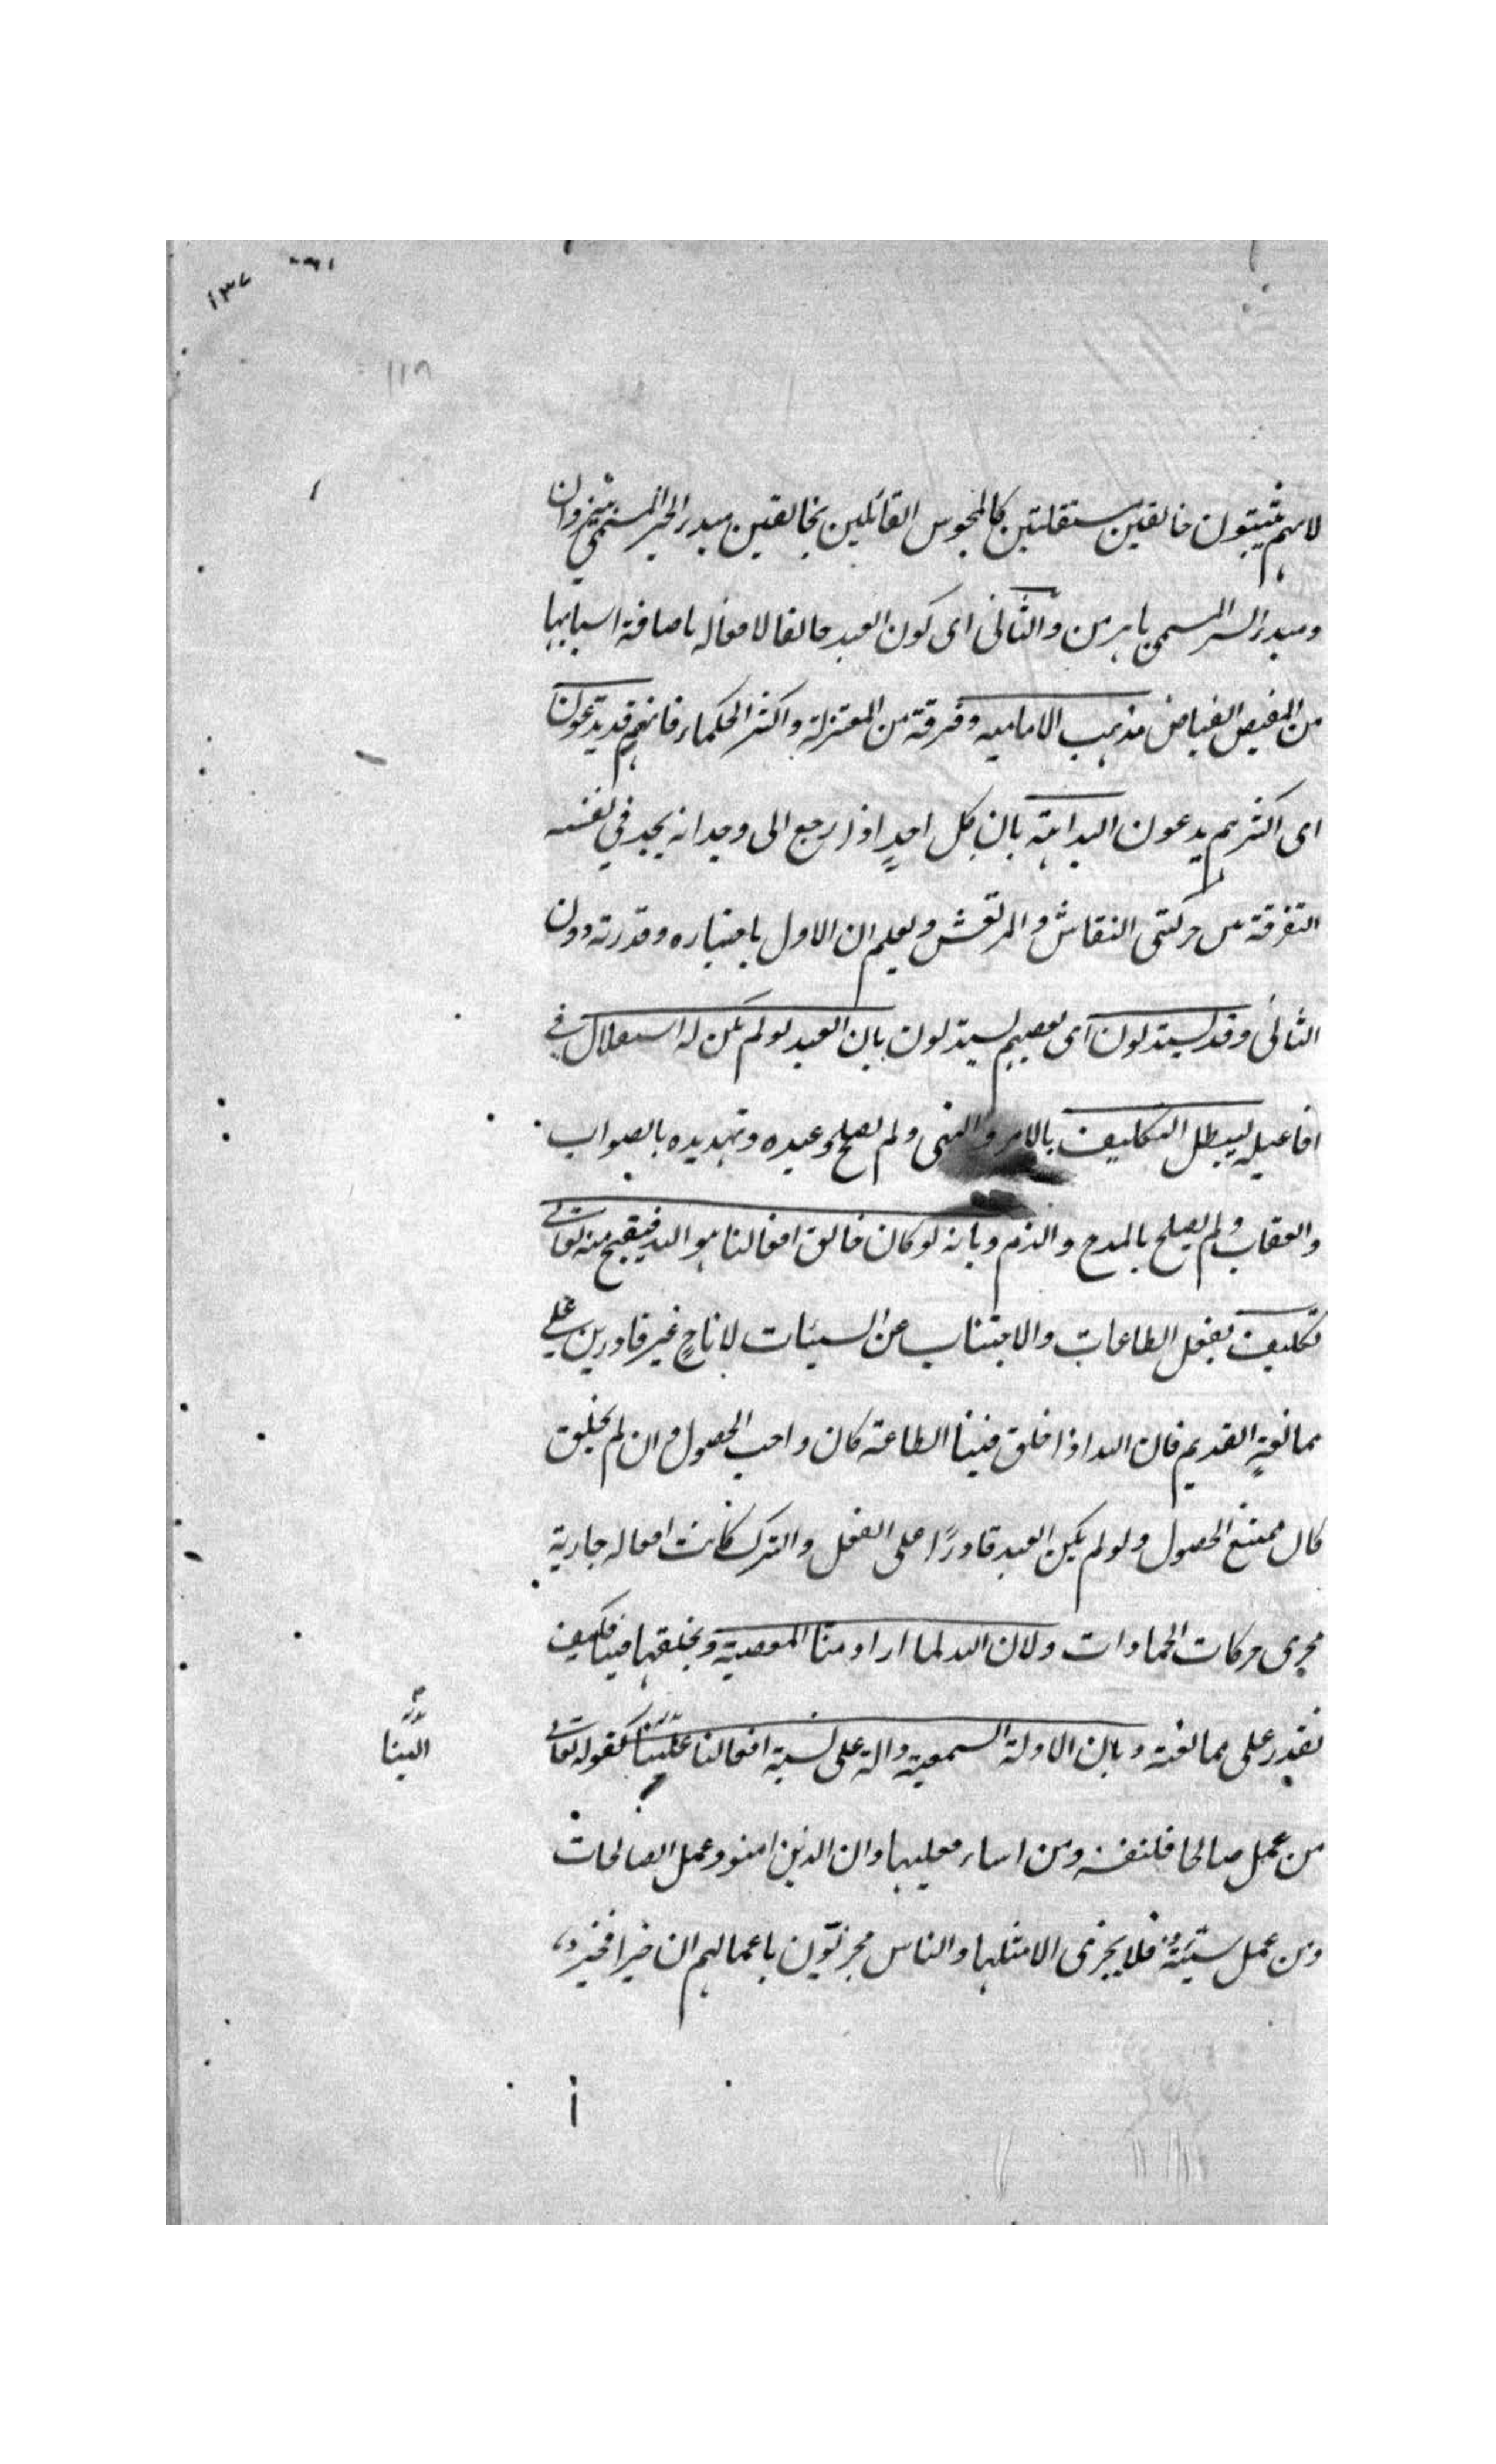 ١٣٧
١١٨
لانهم يثبتون خالقين مستقلتين كالمجوس القائلين بخالقين مبدء الخير المسمى بيزدان
ومبدء الشر المسمى باهرمن والثانى اى كون العبد خالقا لافعاله باضافة اسبابها
من المفيض الفياض مذهب الاماميه وفرقة من المعتزلة واكثر الحكماء فانهم قد يدعون
اى اكثرهم يدعون البداهة بان كل احدٍ اذا رجع الى وجدانه يجد في نفسه
التفرقة بين حركتى النقاش والمرتعش ويعلم ان الاول باختياره وقدرته دون
الثانى وقد يستدلون اى بعضهم يستدلون بان العبد لو لم يكن له استقلال في
افاعيله ليبطل التكليف بالامر والنهى ولم يصلح وعيده وتهديده بالصواب
والعقاب ولم يصلح بالمدح والذم وبانه لو كان خالق افعالنا هو الله فيقبح منه تعالى
تكليف بفعل الطاعات والاجتناب عن السيئات لاناحٍ غير قادرين على
ممانعةٍ القديم فان الله اذا خلق فينا الطاعة كان واجب الحصول وان لم يخلق
كان ممتنع الحصول ولو لم يكن العبد قادرًا على الفعل والترك كانت افعاله جارية
مجرى حركات الجمادات ولان الله لما اراد منا المعصية ويخلقها فينا فكيف
نقدر على ممانعته وبان الادلة السمعية دالة على نسبة افعالنا علينا كقوله تعالى
الينا
من عمل صالحا فلنفسه ومن اساء فعليها وان الذين امنو وعمل الصالحات
ومن عمل سيّئة فلا يجزى الا مثلها والناس مجزيّون باعمالهم ان خيرا فخير و